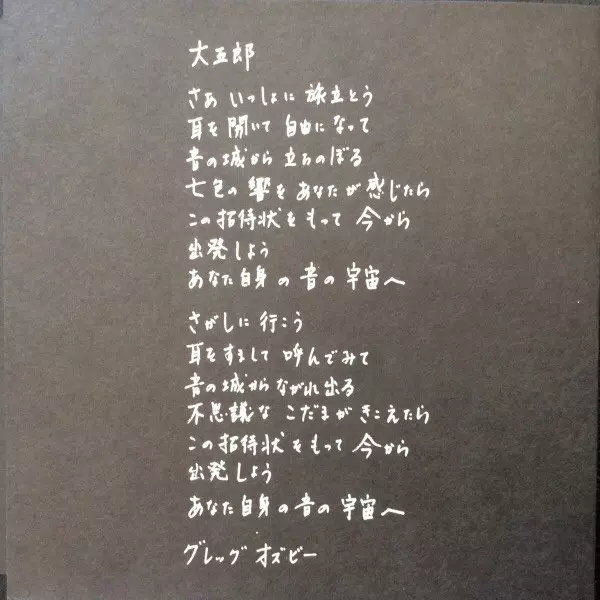 大五郎
さあ いっしょに 旅立とう
耳を 開いて 自由に なって
音の城から 立ちのぼる
七色の 響を あなたが 感じたら
この 招待状を もって 今から
出発しよう
あなた自身の 音の 宇宙へ
さがしに 行こう
耳をすまして 呼んでみて
音の城から ながれ出る
不思議な こだまが きこえたら
この 招待状を もって 今から
出発しよう
あなた自身の 音の 宇宙へ
グレッグ オズビー